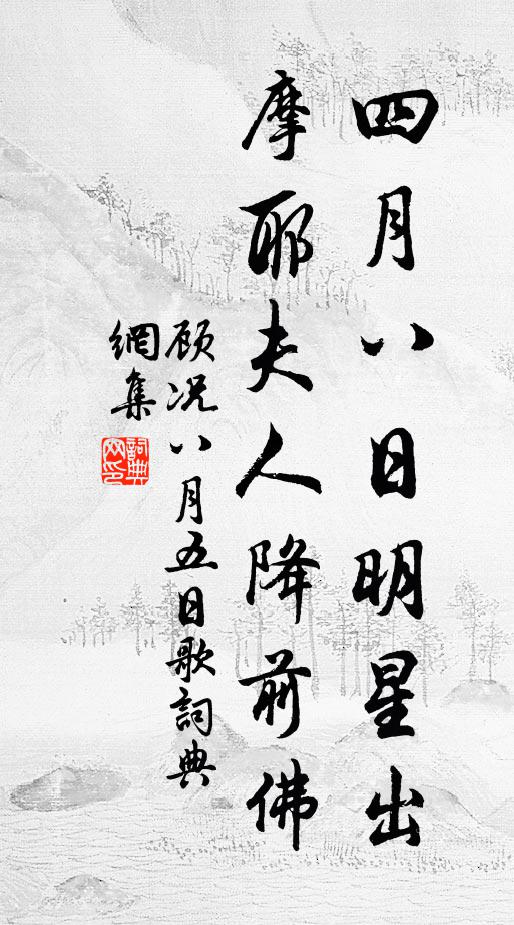 四月八日明星出
摩耶夫人降前佛
顾况八月五日歌詞典
網集
詞典
网印